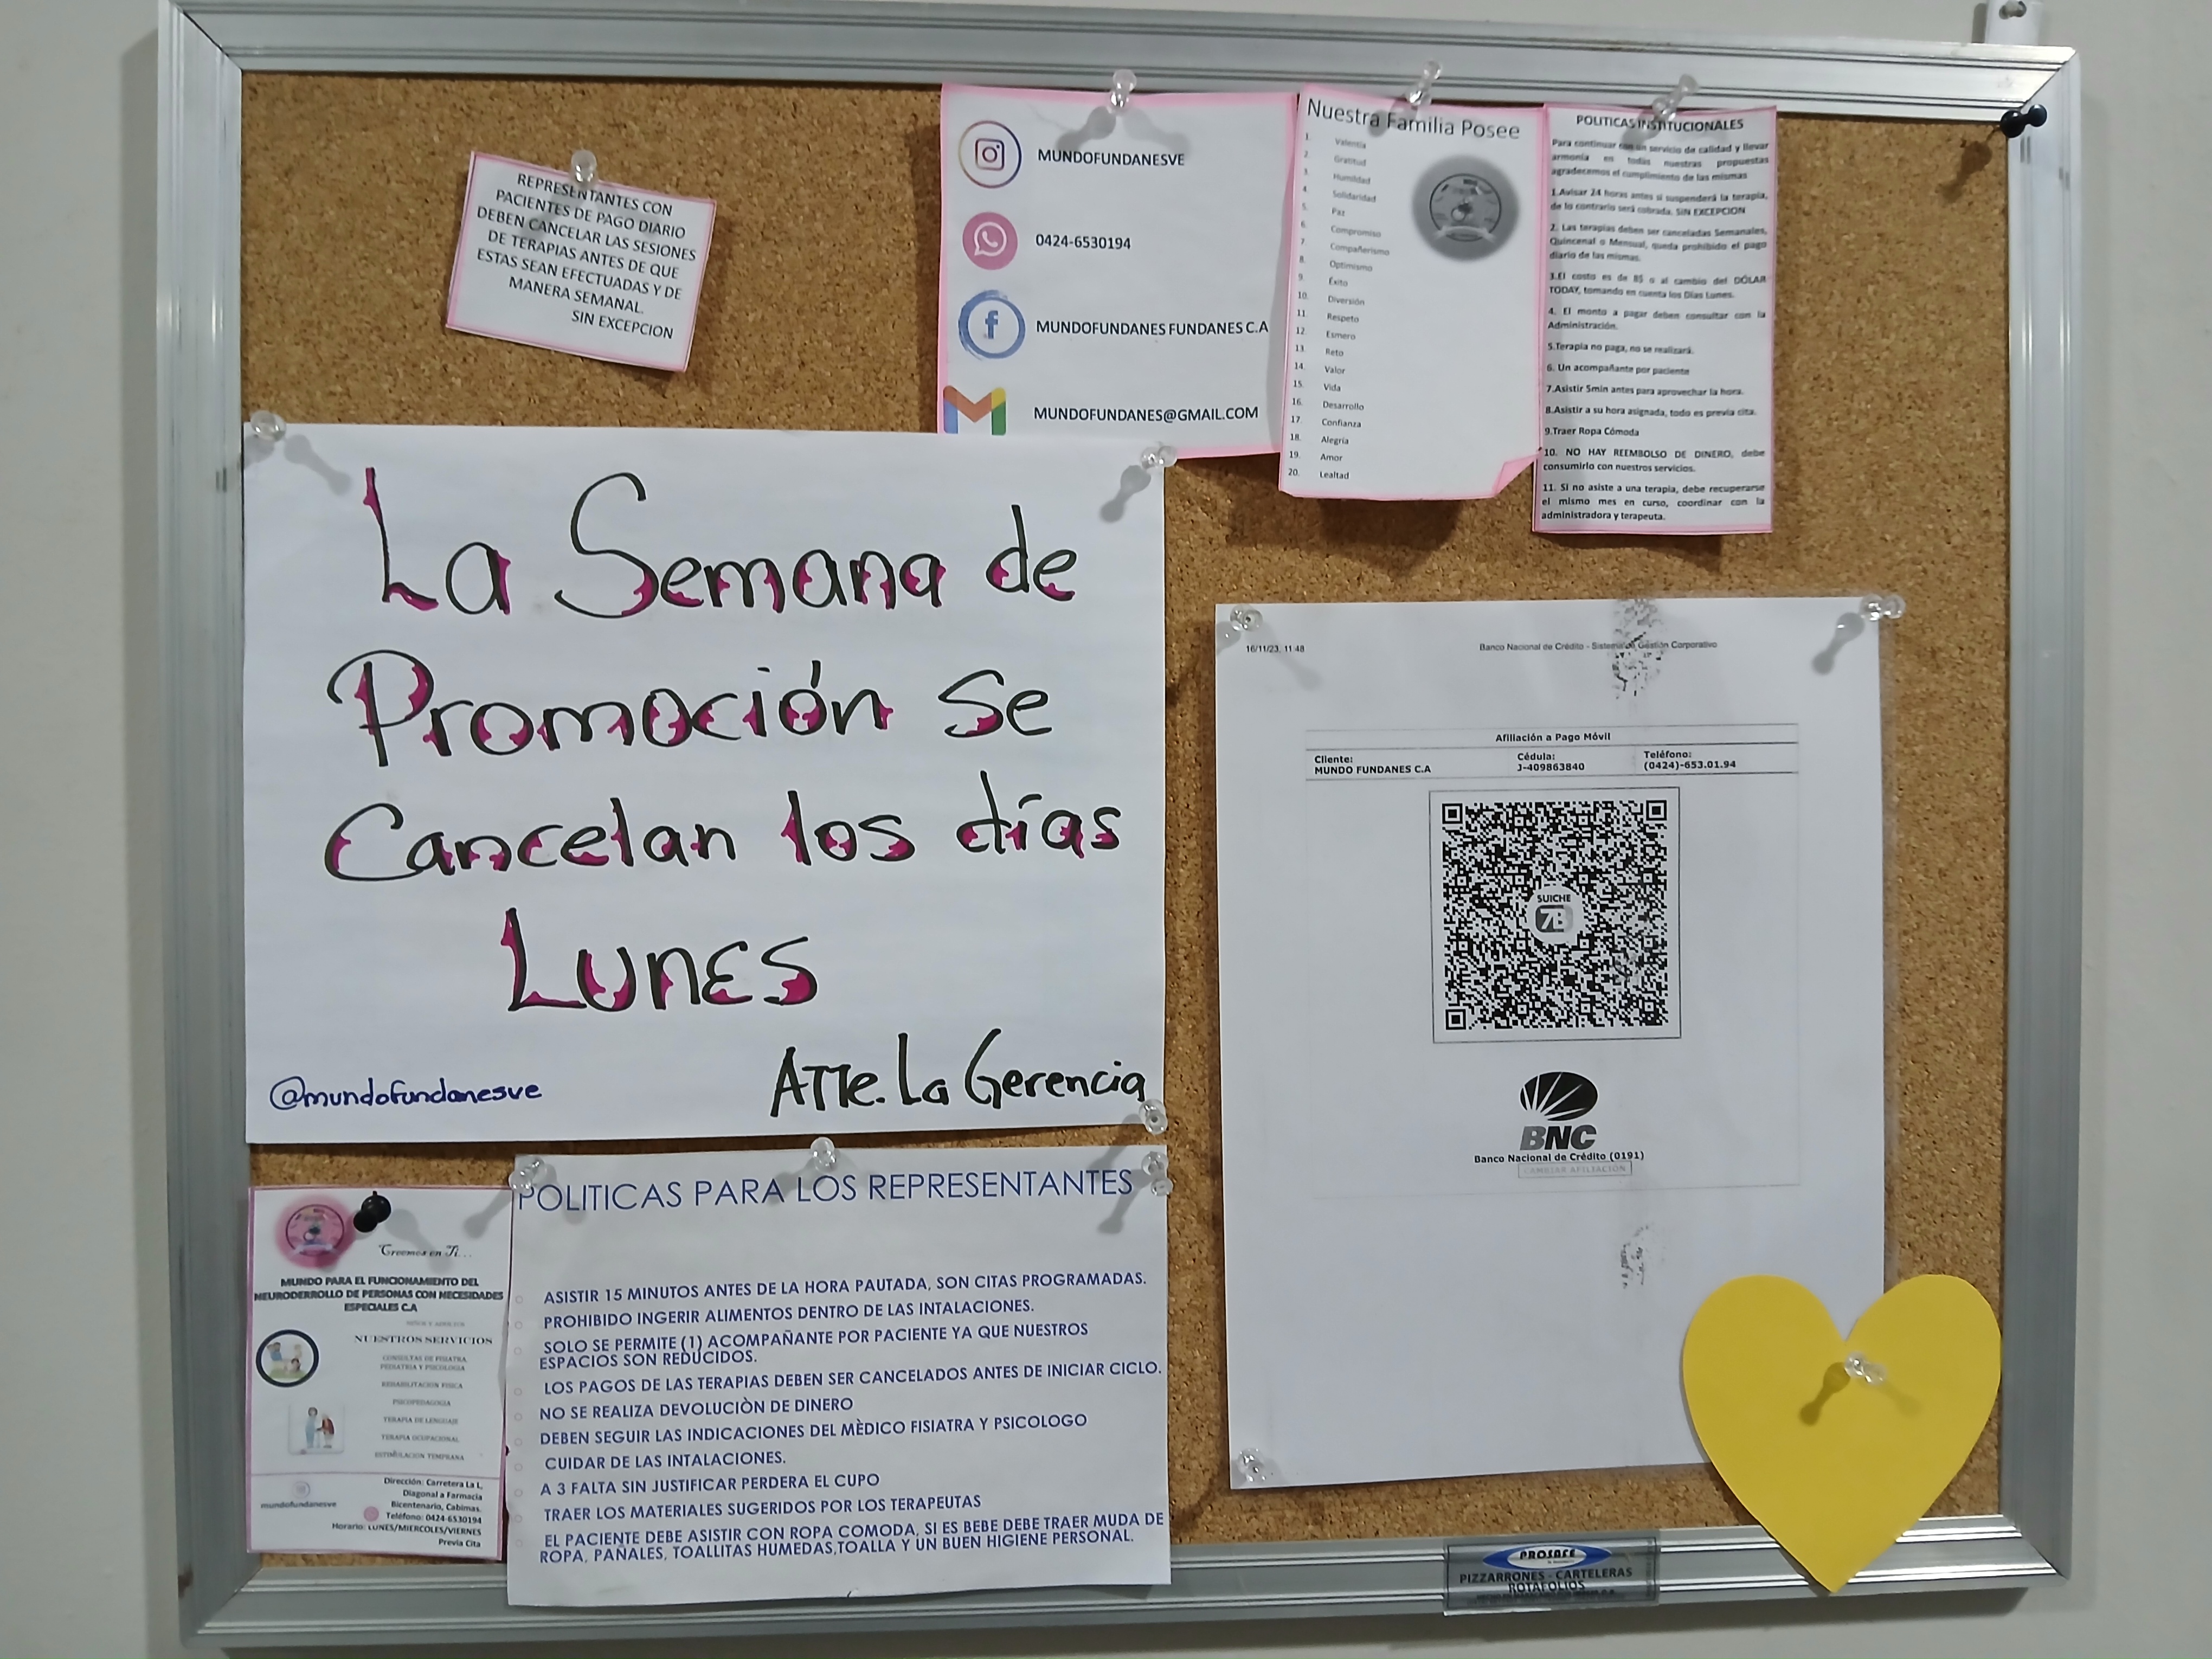 REPRESENTANTES CON
PACIENTES DE PAGO DIARIO
DEBEN CANCELAR LAS SESIONES
DE TERAPIAS ANTES DE QUE
ESTAS SEAN EFECTUADAS Y DE
MANERA SEMANAL.
SIN EXCEPCION
MUNDOFUNDANESVE
0424-6530194
MUNDOFUNDANES FUNDANES C.A
MUNDOFUNDANES@GMAIL.COM
Nuestra Familia Posee
1. Valentía
2. Gratitud
3. Humildad
4. Solidaridad
5. Paz
6. Compromiso
7. Compañerismo
8. Optimismo
9. Éxito
10. Diversión
11. Respeto
12. Esmero
13. Reto
14. Valor
15. Vida
16. Desarrollo
17. Confianza
18. Alegría
19. Amor
20. Lealtad
POLITICAS INSTITUCIONALES
Para continuar con un servicio de calidad y llevar
armonía en todas nuestras propuestas
agradecemos el cumplimiento de las mismas
1.Avisar 24 horas antes si suspenderá la terapia,
de lo contrario será cobrada. SIN EXCEPCION
2. Las terapias deben ser canceladas Semanales,
Quincenal o Mensual, queda prohibido el pago
diario de las mismas.
3.El costo es de 8$ o al cambio del DÓLAR
TODAY, tomando en cuenta los Días Lunes.
4. El monto a pagar deben consultar con la
Administración.
5.Terapia no paga, no se realizará.
6. Un acompañante por paciente
7.Asistir 5min antes para aprovechar la hora.
8.Asistir a su hora asignada, todo es previa cita.
9.Traer Ropa Cómoda
10. NO HAY REEMBOLSO DE DINERO, debe
consumirlo con nuestros servicios.
11. Si no asiste a una terapia, debe recuperarse
el mismo mes en curso, coordinar con la
administradora y terapeuta.
La Semana de
Promoción se
Cancelan los días
Lunes
@mundofundanesve
Atte. La Gerencia
16/11/23, 11:48
Banco Nacional de Crédito - Sistema de Gestión Corporativo
Afiliación a Pago Móvil
Cliente:
MUNDO FUNDANES C.A
Cédula:
J-409863840
Teléfono:
(0424)-653.01.94
SUICHE
7B
BNC
Banco Nacional de Crédito (0191)
CAMBIAR AFILIACIÓN
Creemos en Ti...
MUNDO PARA EL FUNCIONAMIENTO DEL
NEURODERROLLO DE PERSONAS CON NECESIDADES
ESPECIALES C.A
NIÑOS Y ADULTOS
NUESTROS SERVICIOS
CONSULTAS DE FISIATRA,
PEDIATRIA Y PSICOLOGIA
REHABILITACION FISICA
PSICOPEDAGOGIA
TERAPIA DE LENGUAJE
TERAPIA OCUPACIONAL
ESTIMULACION TEMPRANA
mundofundanesve
Dirección: Carretera La L,
Diagonal a Farmacia
Bicentenario, Cabimas.
Teléfono: 0424-6530194
Horario: LUNES/MIERCOLES/VIERNES
Previa Cita
POLITICAS PARA LOS REPRESENTANTES
ASISTIR 15 MINUTOS ANTES DE LA HORA PAUTADA, SON CITAS PROGRAMADAS.
PROHIBIDO INGERIR ALIMENTOS DENTRO DE LAS INTALACIONES.
SOLO SE PERMITE (1) ACOMPAÑANTE POR PACIENTE YA QUE NUESTROS
ESPACIOS SON REDUCIDOS.
LOS PAGOS DE LAS TERAPIAS DEBEN SER CANCELADOS ANTES DE INICIAR CICLO.
NO SE REALIZA DEVOLUCIÒN DE DINERO
DEBEN SEGUIR LAS INDICACIONES DEL MÈDICO FISIATRA Y PSICOLOGO
CUIDAR DE LAS INTALACIONES.
A 3 FALTA SIN JUSTIFICAR PERDERA EL CUPO
TRAER LOS MATERIALES SUGERIDOS POR LOS TERAPEUTAS
EL PACIENTE DEBE ASISTIR CON ROPA COMODA, SI ES BEBE DEBE TRAER MUDA DE
ROPA, PAÑALES, TOALLITAS HUMEDAS,TOALLA Y UN BUEN HIGIENE PERSONAL.
PROSACE
PIZZARRONES - CARTELERAS
ROTAFOLIOS